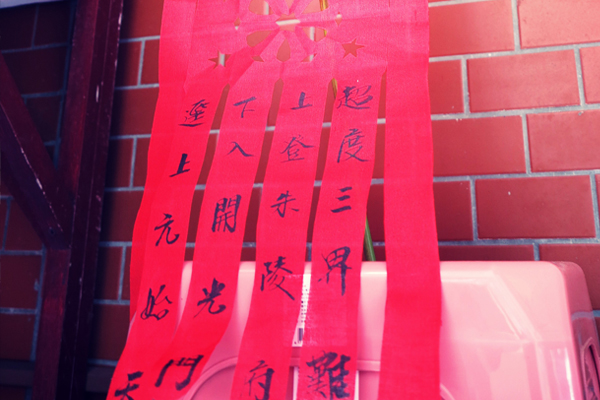 超度三界難
上登朱陵府
下入開光門
逕上元始天